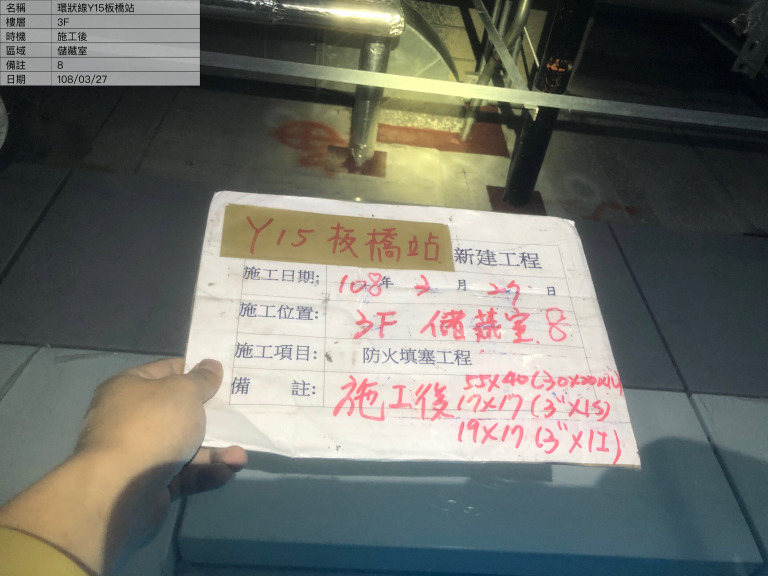 名稱 環狀線Y15板橋站
樓層 3F
時機 施工後
區域 儲藏室
備註 8
日期 108/03/27
Y15板橋站 新建工程
施工日期: 108年 3月 27日
施工位置: 3F 儲藏室 8
施工項目: 防火填塞工程
備 註: 施工後 55X40(30X20X1U)
17X17 (3"X1S)
19X17 (3"X1I)